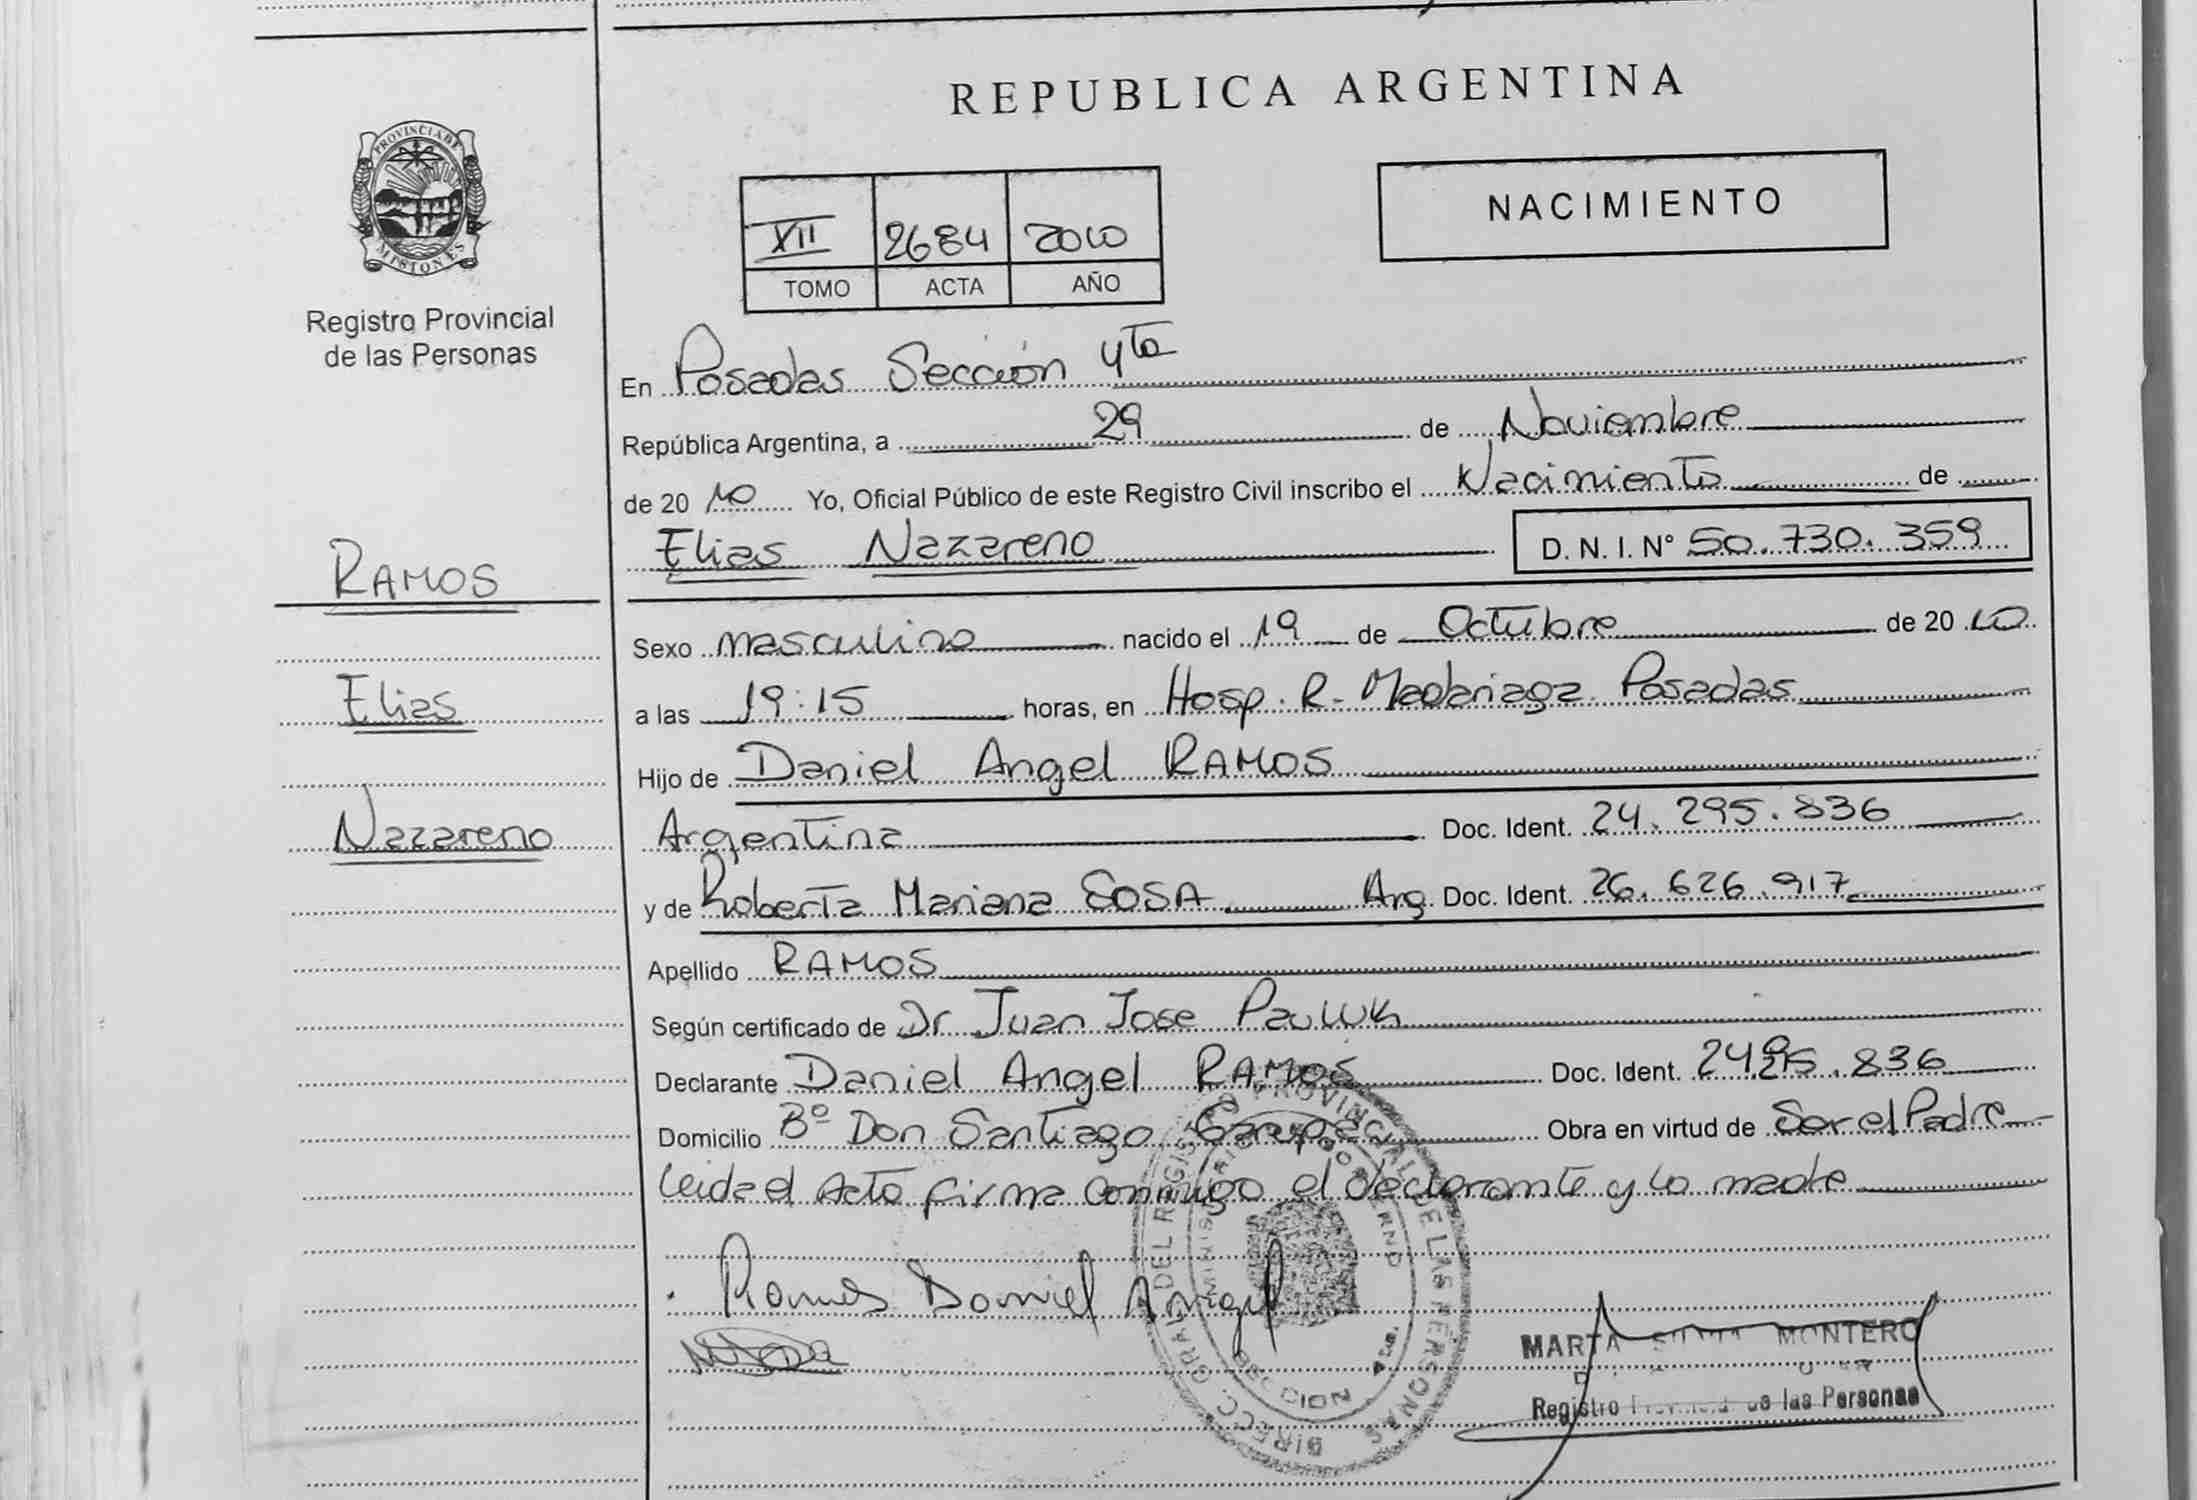 REPUBLICA ARGENTINA
PROVINCIA DE
MISIONES
Registro Provincial
de las Personas
NACIMIENTO
XII 2684 2010
TOMO ACTA AÑO
En Posadas Sección 4ta
República Argentina, a 29 de Noviembre
de 20 10 Yo, Oficial Público de este Registro Civil inscribo el Nacimiento de
Elias Nazareno D. N. I. N° 50.730.359
RAMOS
Elias
Nazareno
Sexo masculino nacido el 19 de Octubre de 20 10
a las 19:15 horas, en Hosp. R. Madariaga Posadas
Hijo de Daniel Angel RAMOS
Argentina Doc. Ident. 24.295.836
y de Roberta Mariana SOSA. Arg. Doc. Ident. 26.626.917
Apellido RAMOS
Según certificado de Dr Juan Jose Pawluk
Declarante Daniel Angel RAMOS Doc. Ident. 24295.836
Domicilio Bº Don Santiago Garupá Obra en virtud de Ser el Padre
Leida el Acta firma conmigo el declarante y la madre
Ramos Daniel Angel
DIRECC. GRAL. DEL REGISTRO PROVINCIAL DE LAS PERSONAS
MINISTERIO GOBIERNO
MARTA SILVIA MONTERO
Registro Provincial de las Personas